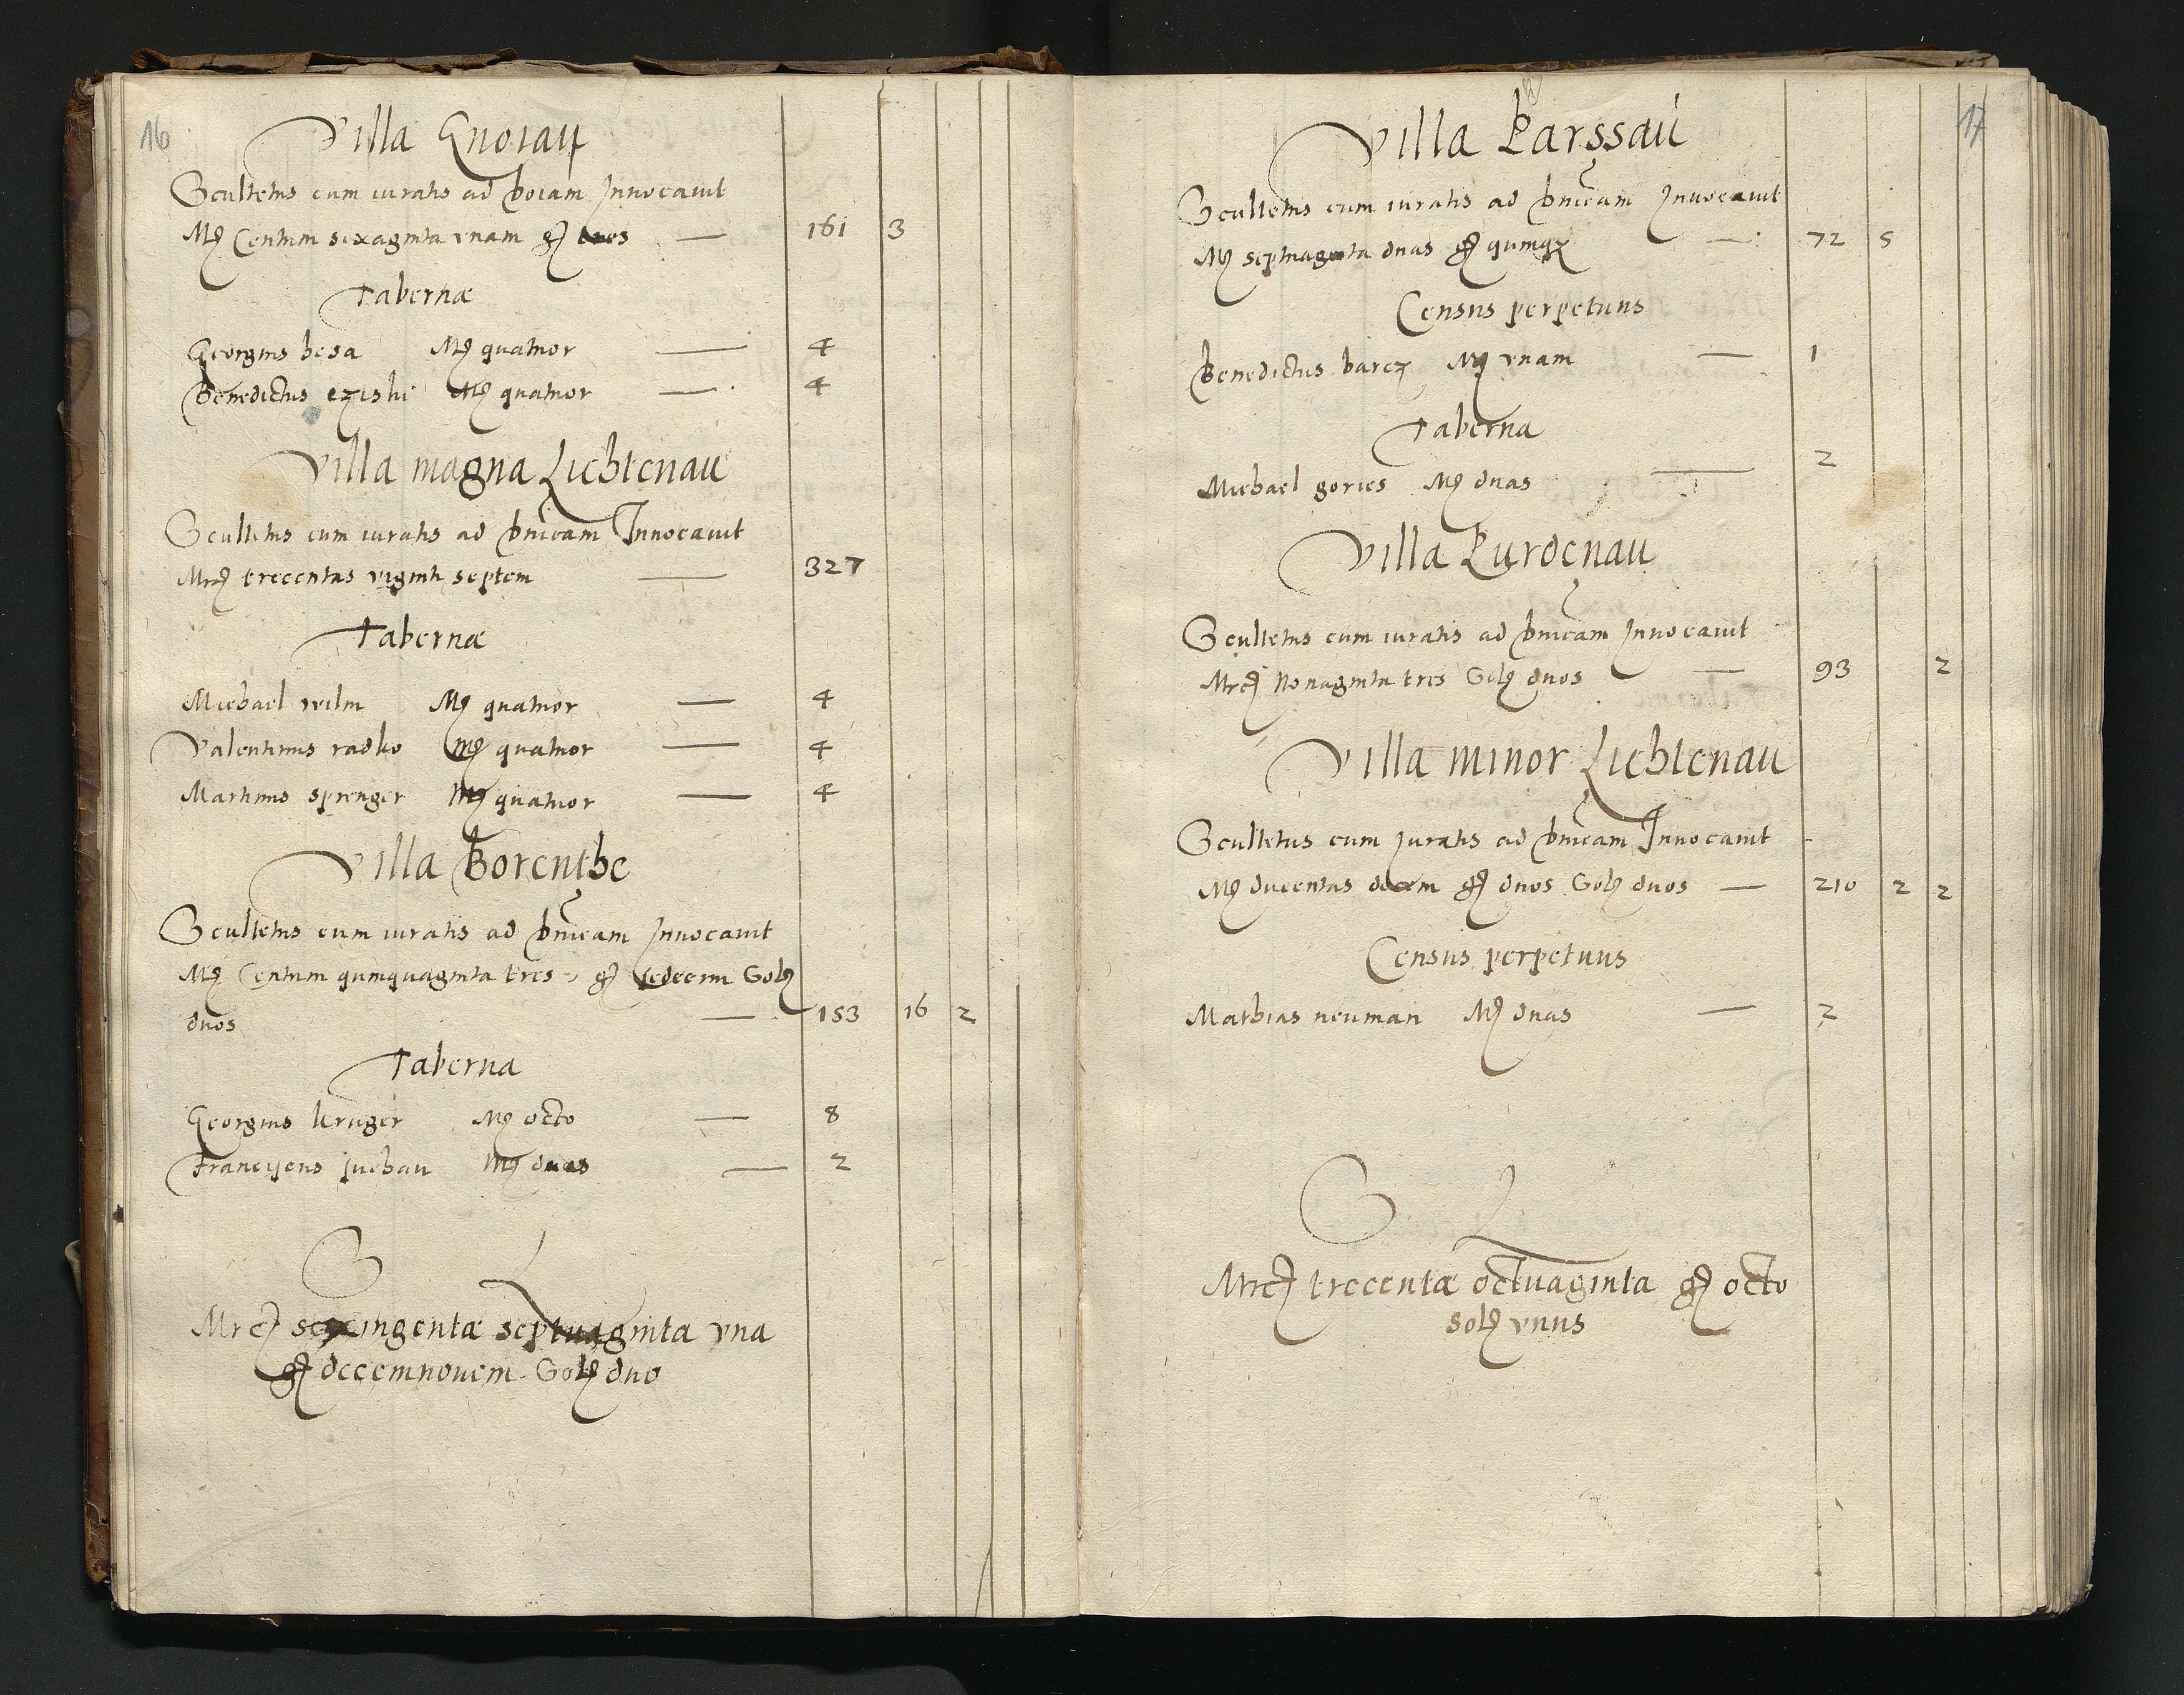 16
Villa Gnoiau
Scultetus cum iuratis ad dnicam Innocauit
Mrc Centum sexaginta vnam gr tres — 161 3
Tabernæ
Georgius besa Mrc quatuor — 4
Benedictus czisski Mrc quatuor — 4
Villa magna Lichtenau
Scultetus cum iuratis ad dnicam Innocauit
Mrc trecentas viginti septem — 327
Tabernæ
Michael wilm Mrc quatuor — 4
Valentinus radko Mrc quatuor — 4
Martinus sprenger Mrc quatuor — 4
Villa Borenthe
Scultetus cum iuratis ad dnicam Innocauit
Mrc Centum quinquaginta tres gr sedecim Sol
duos — 153 16 2
Taberna
Georgius kruger Mrc octo — 8
Franciscus juchau Mrc duas — 2
S L
Mrc sexcingentæ septuaginta vna
gr decemnouem Sol duo
17
Villa Parssau
Scultetus cum iuratis ad dnicam Inuocauit
Mrc septuaginta duas gr quinq — 72 5
Census perpetuus
Benedictus barcz Mrc vnam — 1
Taberna
Michael gories Mrc duas — 2
Villa Purdenau
Scultetus cum iuratis ad dnicam Innocauit
Mrc Nonaginta tres Sol duos — 93 2
Villa minor Lichtenau
Scultetus cum Juratis ad dnicam Innocauit
Mrc ducentas decem gr duos Sol duos — 210 2 2
Census perpetuus
Mathias neuman Mrc duas — 2
S L
Mrc trecentæ octuaginta gr octo
sol vnus